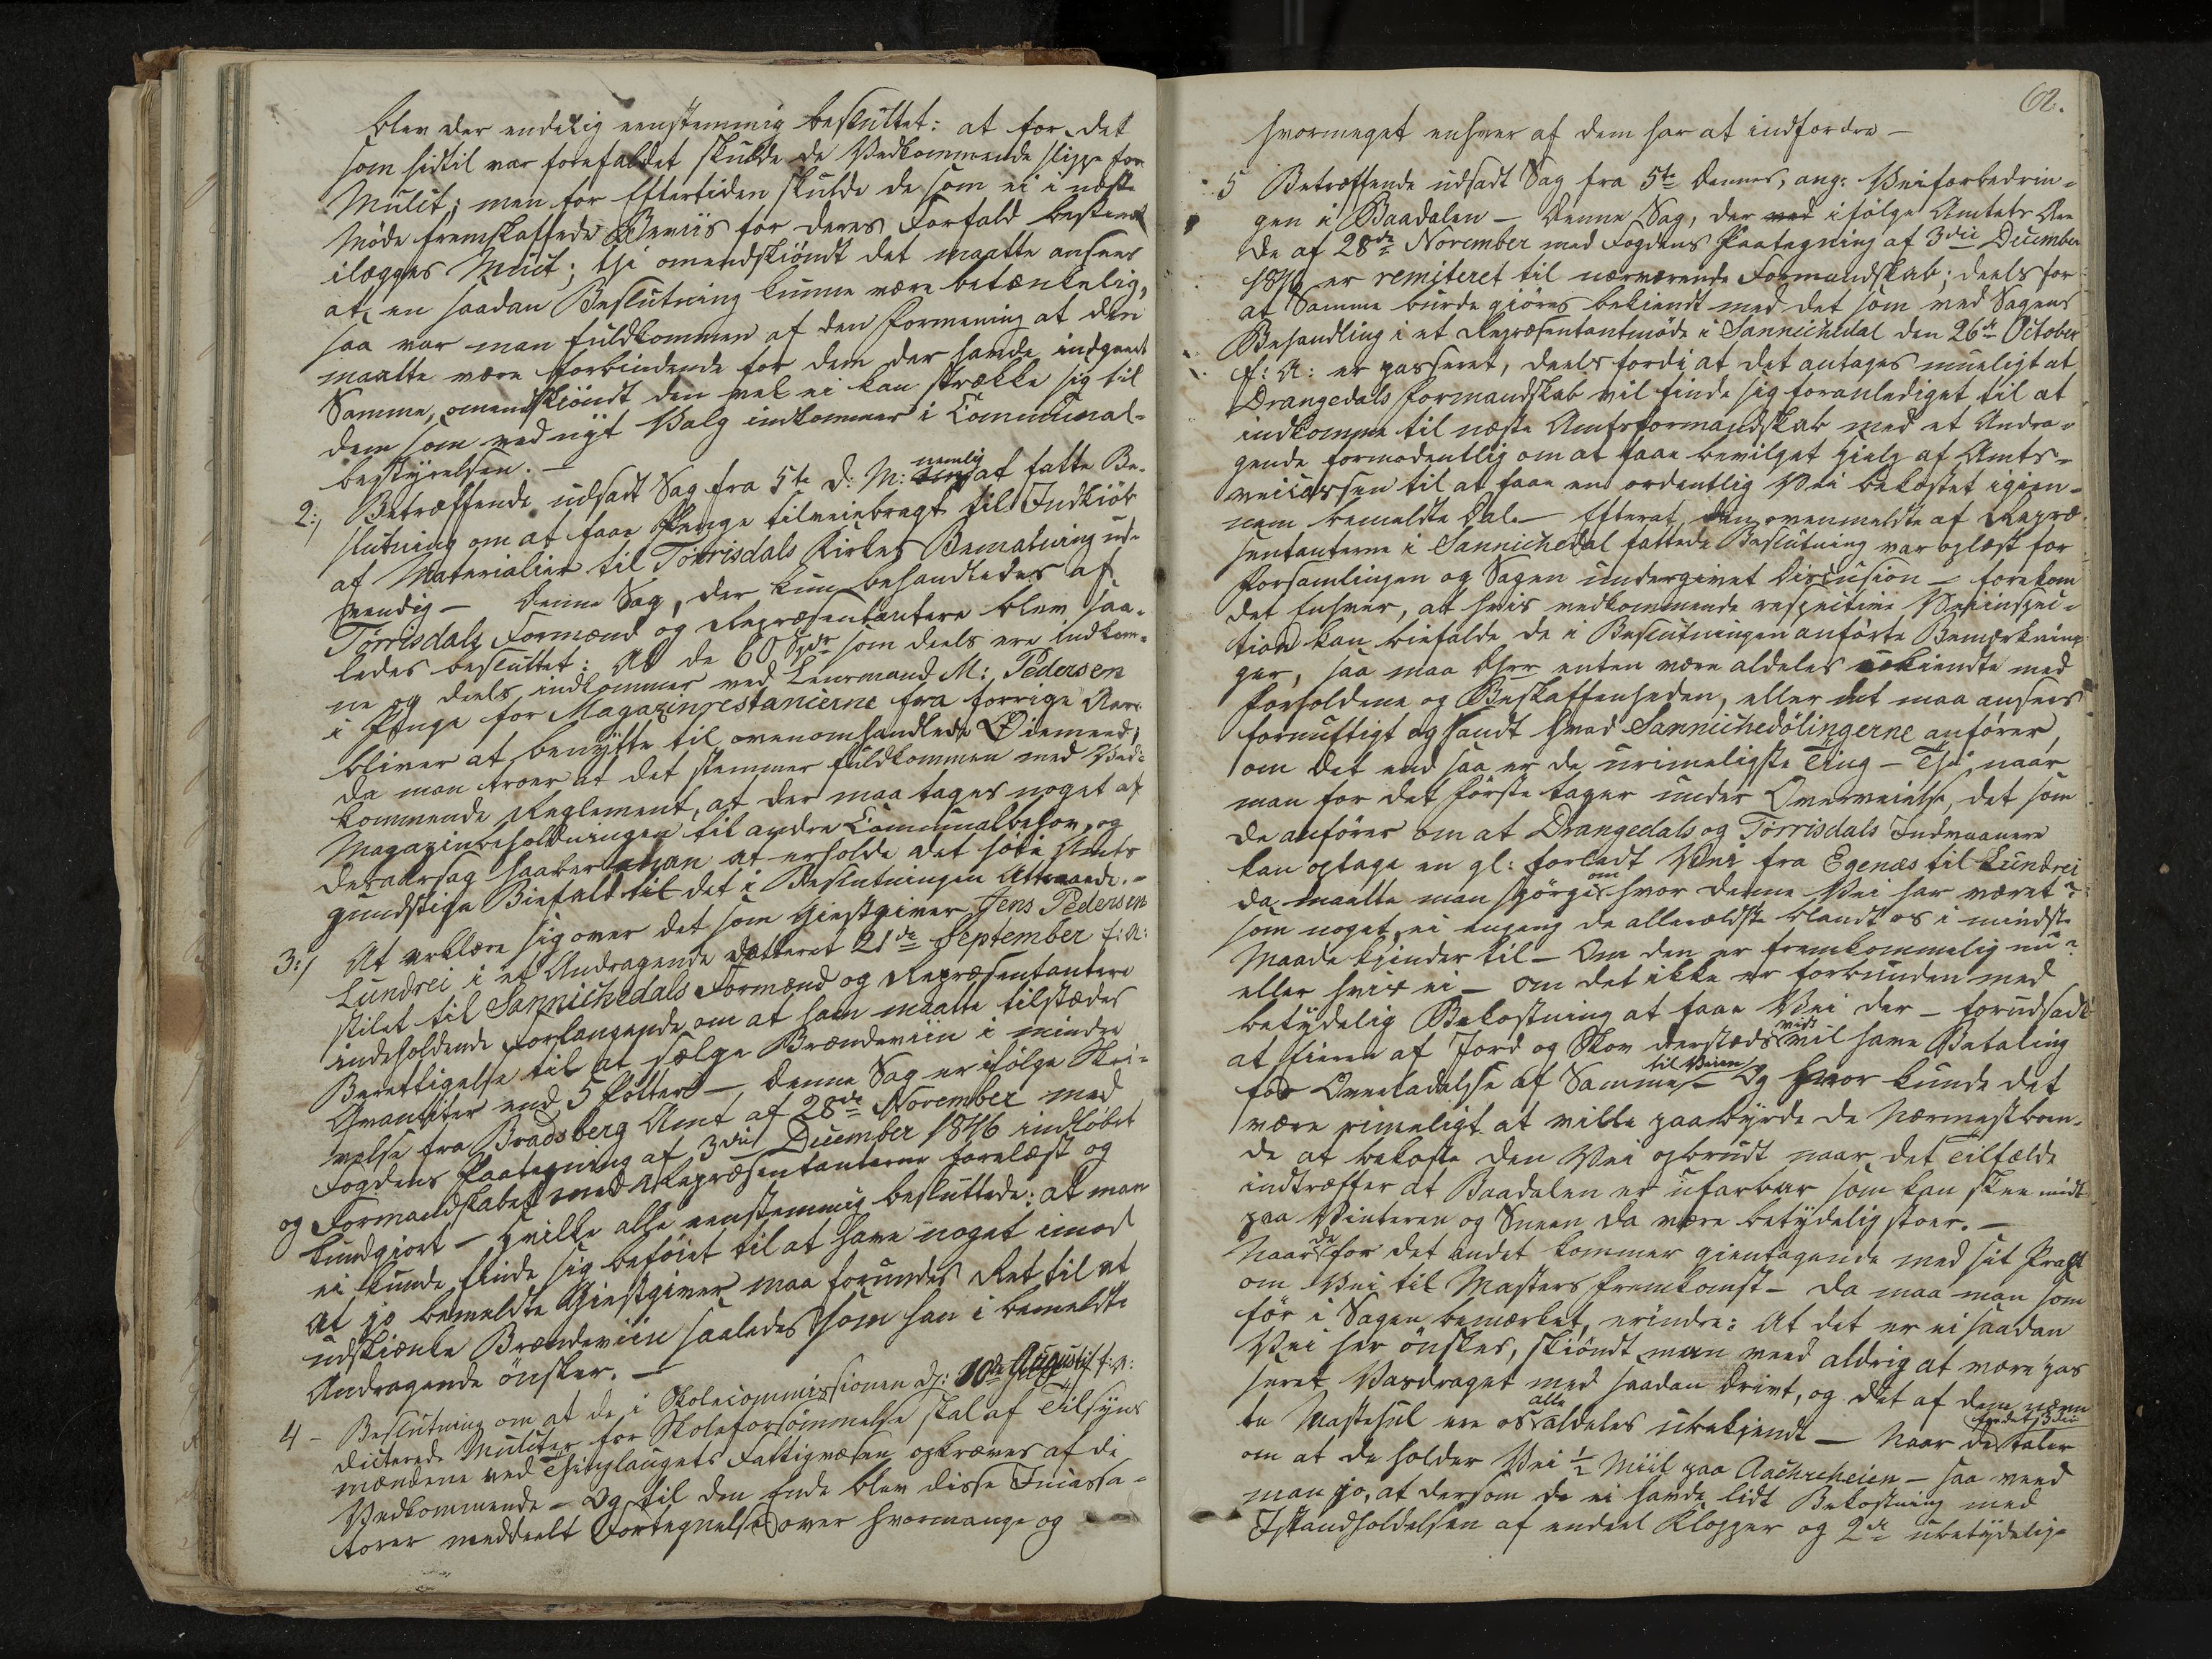 blev der endelig eenstemmig besluttet: at for det
som hidtil var forefaldet skulde de Vedkommende slippe for
Mulct; men for Eftertiden skulde de som ei i næste
Møde fremskaffede Beviis for deres Forfald bestemt
ilægges Mulct; thi omendskiöndt det maatte ansees
at en saadan Beslutning kunne være betænkelig,
saa var man fuldkommen af den Formening at den
maatte være forbindende for dem der havde indgaaet
Samme, omendskiöndt den vel ei kan strække sig til
dem som ved nyt Valg indkommer i Communal-
bestyrelsen. —
2:/ Betræffende udsadt Sag fra 5te d: M: nemlig at fatte Be-
slutning om at faae Penge tilveiebragt til Indkiöb
af Materialier til Törrisdals Kirkes Bemaling ud-
vendig — Denne Sag, der kun behandledes af
Törrisdals Formænd og Repræsentantere blev saa-
ledes besluttet: At de 60 Spdr som deels ere indkom-
ne og deels indkommer ved Lensmand M: Pedersen
i Penge for Magazinrestancierne fra forrige Aar
bliver at benytte til ovenomhandlede Øiemeed,
da man troer at det stemmer fuldkommen med Ved-
kommende Reglement, at der maa tages noget af
Magazinbeholdningen til andre Communalbehov, og
desaarsag haaber man at erholde det höie Amts
gunstige Biefald til det i Beslutningen Attraaede. -
3:/ At erklære sig over det som Giestgiver Jens Pedersen
Lundrei i et Andragende datteret 21de September f: A:
stilet til Sannichedals Formænd og Repræsentantere
indeholdende Forlangende om at ham maatte tilstædes
Berettigelse til at sælge Brændeviin i mindre
Qvantiter end 5 Potter — Denne Sag er ifölge Skri-
velse fra Bradsberg Amt af 28de November med
Fogdens Paategning af 3die December 1846 indlöbet
og Formandskabet med Repræsentanterne forelæst og
kundgiort — hvilke alle eenstemmig besluttede: at man
ei kunde finde sig beföiet til at have noget imod
at jo bemeldte Giestgiver maa forundes Ret til at
udskiænke Brændeviin saaledes som han i bemeldte
Andragende önsker. —
4 - Beslutning om at de i Skolecommissionen d: 10de August f: A:
dicterede Mulcter for Skoleforsömmelse skal af Tilsyns
mændene ved Thinglaugets Fattigvæsen opkræves af de
Vedkommende — Og til den Ende blev disse Incassa-
torer meddeelt Fortegnelse over hvormange og
62.
hvormeget enhver af dem har at indfordre —
5 Betræffende udsadt Sag fra 5te Dennes, ang: Veiforbedrin-
gen i Baadalen — Denne Sag, der ifölge Amtets
de af 28de November med Fogdens Paategning af 3die December
1846 er remiteret til nærværende Formandskab; deels for
at Samme burde giöres bekiendt med det som ved Sagens
Behandling i et Repræsentantmöde i Sannichedal den 26de October
f: A: er passeret, deels fordi at det antages mueligt at
Drangedals Formandskab vil finde sig foranlediget til at
indkomme til næste Amtsformandskab med et Andra-
gende formodentlig om at faae bevilget Hielp af Amts-
veicassen til at faae en ordentlig Vei bekostet igien-
nem bemeldte Dal — Efterat den ovenmeldte af Repræ-
sentanterne i Sannichedal fattede Beslutning var oplæst for
Forsamlingen og Sagen undergivet Discusion — forekom
det Enhver, at hvis vedkommende respective Veiinspec-
tion kan biefalde de i Beslutningen anförte Bemærknin-
ger, saa maa Hrr enten være aldeles ubekiendte med
Forholdene og Beskaffenheden, eller det maa ansees
fornuftigt og sandt hvad Sannichedölingerne anförer,
om det end saa er de urimeligste Ting — Thi naar
man for det förste tager under Overveielse, det som
de anförer om at Drangedals og Törrisdals Indvaanere
kan optage en gl: forladt Vei fra Egenæs til Lundrei
da maatte man spörge om hvor denne Vei har været?
som noget ei engang de allerældste blandt os i mindste
Maade kjender til — Om den er fremkommelig nu?
eller hvis ei — om det ikke er forbunden med
betydelig Bekostning at faae Vei der — forudsadt
at Eieren af Jord og Skov dersteds vist vil have Betaling
for Overladelse af Samme til Veien — Og hvor kunde det
være rimeligt at ville paabyrde de Nærmestboen-
de at bekoste den Vei opbrudt naar det Tilfælde
indtræffer at Baadalen er ufarbar som kan skee midt
paa Vinteren og Sneen da være betydelig stoer. —
Naar de for det andet kommer gientagende med sit Pral
om Vei til Masters Fremkomst — da maa man som
för i Sagen bemærket, erindre: At det er ei saadan
Vei her önskes, skiöndt man veed aldrig at være pas
seret Vasdraget med saadan Drivt, og det af dem nævn
te Mastehul ere os alle aldeles ubekjendt — Naar de for det 3die taler
om at de holder Vei ½ Miil paa Aachreheien — saa veed
man jo, at dersom de ei havde lidt Bekostning med
Istandholdelsen af endeel Klopper og 2de ubetydelige